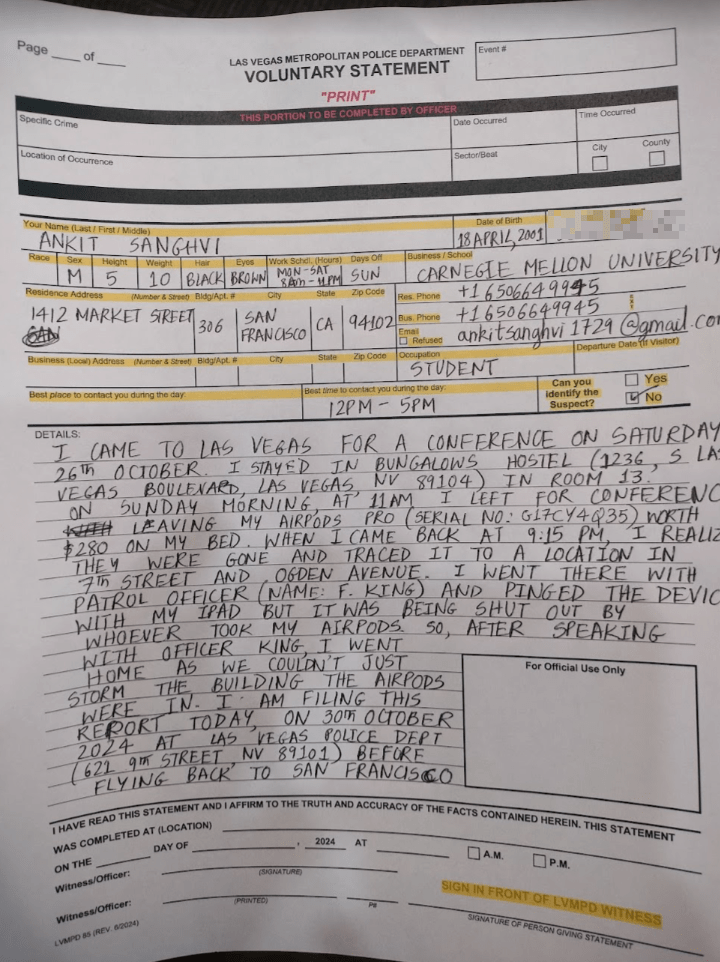 Page ____ of ____
LAS VEGAS METROPOLITAN POLICE DEPARTMENT
VOLUNTARY STATEMENT
"PRINT"
Event #
THIS PORTION TO BE COMPLETED BY OFFICER
Specific Crime
Date Occurred
Time Occurred
Location of Occurrence
Sector/Beat
City
County
Your Name (Last / First / Middle)
Date of Birth
ANKIT SANGHVI
18 APRIL, 2001
Race Sex Height Weight Hair Eyes Work Schdl. (Hours) Days Off Business / School
M 5 10 BLACK BROWN MON-SAT 8AM - 11PM SUN CARNEGIE MELLON UNIVERSITY
Residence Address (Number & Street) Bldg/Apt. # City State Zip Code
Res. Phone +1 6506649945
1412 MARKET STREET 306 SAN FRANCISCO CA 94102
Bus. Phone +1 6506649945
Email ankitsanghvi1729@gmail.com
Refused
Business (Local) Address (Number & Street) Bldg/Apt. # City State Zip Code
Occupation
STUDENT
Departure Date (If Visitor)
Best place to contact you during the day:
Best time to contact you during the day:
12PM - 5PM
Can you identify the Suspect?
Yes
No
DETAILS:
I CAME TO LAS VEGAS FOR A CONFERENCE ON SATURDAY
26TH OCTOBER. I STAYED IN BUNGALOWS HOSTEL (1236, S LAS
VEGAS BOULEVARD, LAS VEGAS, NV 89104) IN ROOM 13.
ON SUNDAY MORNING, AT 11AM I LEFT FOR CONFERENC
LEAVING MY AIRPODS PRO (SERIAL NO: G17CY4Q35) WORTH
$280 ON MY BED. WHEN I CAME BACK AT 9:15 PM, I REALIZ
THEY WERE GONE AND TRACED IT TO A LOCATION IN
7TH STREET AND OGDEN AVENUE. I WENT THERE WITH
PATROL OFFICER (NAME: F. KING) AND PINGED THE DEVIC
WITH MY IPAD BUT IT WAS BEING SHUT OUT BY
WHOEVER TOOK MY AIRPODS. SO, AFTER SPEAKING
WITH OFFICER KING, I WENT
HOME AS WE COULDN'T JUST
STORM THE BUILDING THE AIRPODS
WERE IN. I AM FILING THIS
REPORT TODAY, ON 30TH OCTOBER
2024 AT LAS VEGAS POLICE DEPT
(621 9TH STREET, NV 89101) BEFORE
FLYING BACK TO SAN FRANCISCO
For Official Use Only
I HAVE READ THIS STATEMENT AND I AFFIRM TO THE TRUTH AND ACCURACY OF THE FACTS CONTAINED HEREIN. THIS STATEMENT
WAS COMPLETED AT (LOCATION)
ON THE ____ DAY OF ____, 2024 AT ____ A.M. P.M.
Witness/Officer:
(SIGNATURE)
Witness/Officer:
(PRINTED)
P#
SIGN IN FRONT OF LVMPD WITNESS
SIGNATURE OF PERSON GIVING STATEMENT
LVMPD 85 (REV. 8/2024)